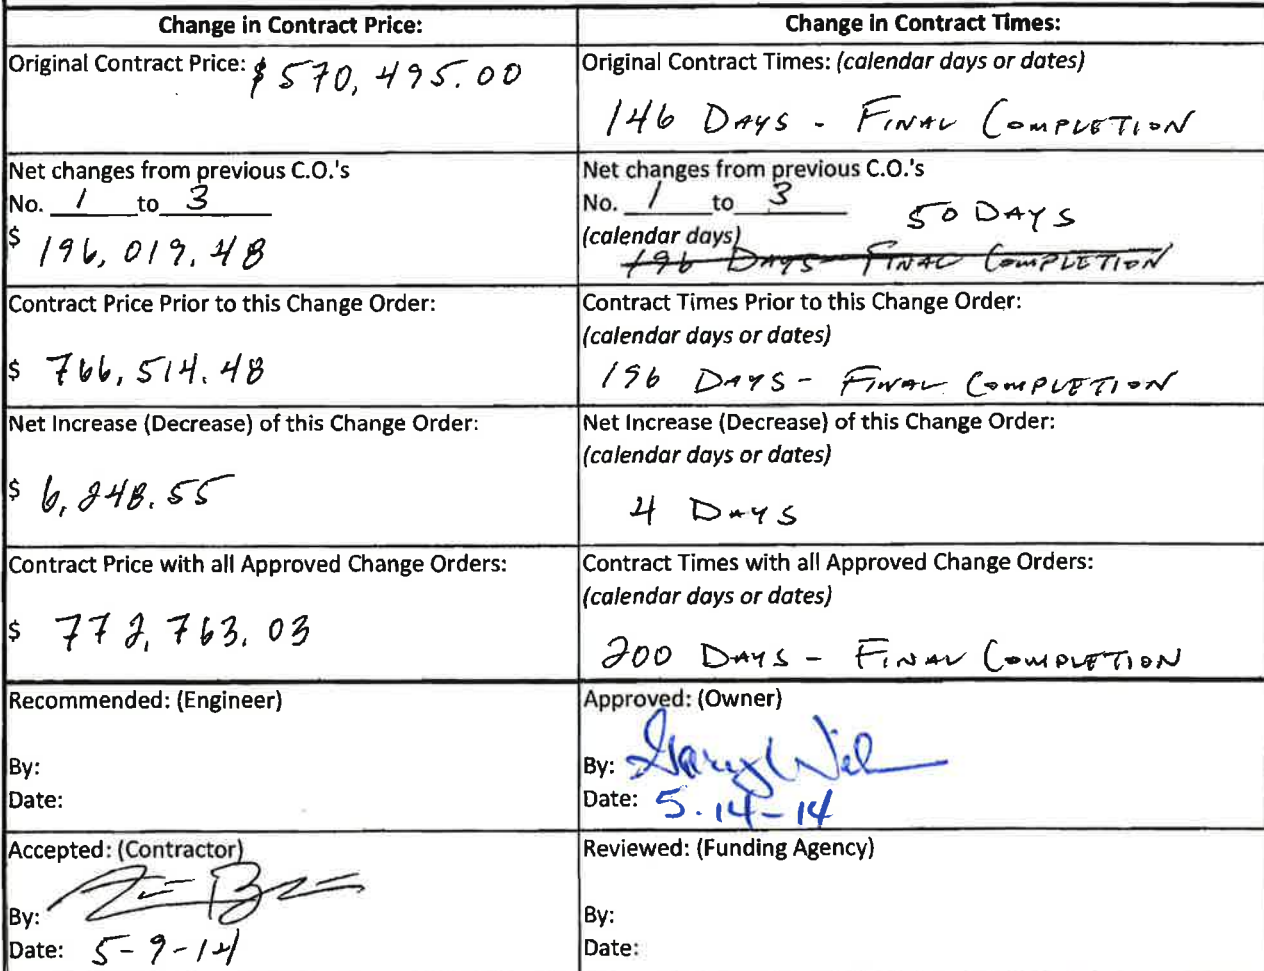 Change in Contract Price:
Change in Contract Times:
Original Contract Price: $ 570,495.00
Original Contract Times: (calendar days or dates)
146 DAYS - FINAL COMPLETION
Net changes from previous C.O.'s
No. 1 to 3
$ 196,019.48
Net changes from previous C.O.'s
No. 1 to 3 50 DAYS
(calendar days)
196 DAYS FINAL COMPLETION
Contract Price Prior to this Change Order:
$ 766,514.48
Contract Times Prior to this Change Order:
(calendar days or dates)
196 DAYS - FINAL COMPLETION
Net Increase (Decrease) of this Change Order:
$ 6,248.55
Net Increase (Decrease) of this Change Order:
(calendar days or dates)
4 DAYS
Contract Price with all Approved Change Orders:
$ 772,763.03
Contract Times with all Approved Change Orders:
(calendar days or dates)
200 DAYS - FINAL COMPLETION
Recommended: (Engineer)
By:
Date:
Approved: (Owner)
By: Gary
Date: 5.14-14
Accepted: (Contractor)
By:
Date: 5-9-14
Reviewed: (Funding Agency)
By:
Date: